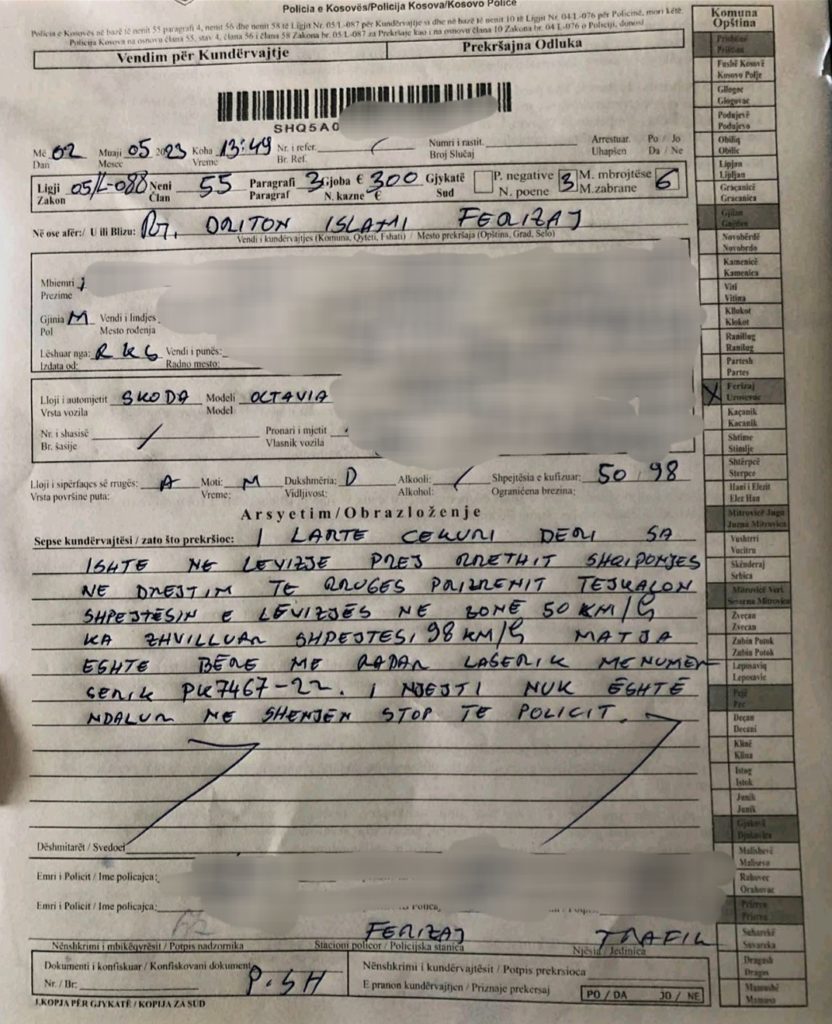 Policia e Kosovës/Policija Kosova/Kosovo Police
Policia e Kosovës në bazë të nenit 55 paragrafi 4, nenit 56 dhe nenit 58 të Ligjit Nr. 05/L-087 për Kundërvajtje si dhe në bazë të nenit 10 të Ligjit Nr. 04/L-076 për Policinë, mori këtë
Policija Kosova na osnovu člana 55, stav 4, člana 56 i člana 58 Zakona br. 05/L-087 za Prekršaje kao i na osnovu člana 10 Zakona br. 04 L-076 o Policiji, donosi
Vendim për Kundërvajtje Prekršajna Odluka
SHQ5A0
Më 02 Muaji 05 2023 Koha 13:49 Nr. i refer. Numri i rastit. Arrestuar. Po / Jo
Dan Mesec Vreme Br. Ref. Broj Slučaj Uhapšen Da / Ne
Ligji 05/L-088 Neni 55 Paragrafi 3 Gjoba € 300 Gjykatë P. negative 3 M. mbrojtëse 6
Zakon Član Paragraf N. kazne € Sud N. poene M.zabrane
Në ose afër:/ U ili Blizu: RR. DRITON ISLAMI FERIZAJ
Vendi i kundërvajtjes (Komuna, Qyteti, Fshati) / Mesto prekršaja (Opština, Grad, Selo)
Mbiemri
Prezime
Gjinia M Vendi i lindjes
Pol Mesto rođenja
Lëshuar nga: RKS Vendi i punës:
Izdata od: Radno mesto:
Lloji i automjetit SKODA Modeli OCTAVIA
Vrsta vozila Model
Nr. i shasisë / Pronari i mjetit
Br. šasije Vlasnik vozila
Lloji i sipërfaqes së rrugës: A Moti: M Dukshmëria: D Alkooli: / Shpejtësia e kufizuar: 50 98
Vrsta površine puta: Vreme: Vidljivost: Alkohol: Ograničena brzina:
Arsyetim/Obrazloženje
Sepse kundërvajtësi / zato što prekršioc: I LARTE CEKURI DERI SA
ISHTE NE LEVIZJE PREJ RRETHIT SHQIPONJES
NE DREJTIM TE RRUGES PRIZRENIT TEJKALON
SHPEJTËSIN E LËVIZJËS NE ZONË 50 KM/h
KA ZHVILLUAR SHPEJTESI 98 KM/h MATJA
ESHTE BËRË ME RADAR LASERIK ME NUMER
SERIK PK7467-22. I NJEJTI NUK ËSHTË
NDALUR NE SHENJËN STOP TE POLICIT.
Dëshmitarët / Svedoci
Emri i Policit / Ime policajca:
Emri i Policit / Ime policajca:
FERIZAJ TRAFIK
Nënshkrimi i mbikëqyrësit / Potpis nadzornika Stacioni policor / Policijska stanica Njësia / Jedinica
Dokumenti i konfiskuar / Konfiskovani dokument Nënshkrimi i kundërvajtësit / Potpis prekrsioca
Nr. / Br: P.SH E pranon kundërvajtjen / Priznaje prekersaj PO / DA JO / NE
1.KOPJA PËR GJYKATË / KOPIJA ZA SUD
Komuna
Opština
Prishtinë
Fushë Kosovë
Kosovo Polje
Gllogoc
Glogovac
Podujevë
Podujevo
Obiliq
Obilic
Lipjan
Lipljan
Graçanicë
Gracanica
Gjilan
Novobërdë
Novobrdo
Kamenicë
Kamenica
Viti
Vitina
Kllokot
Klokot
Ranillug
Ranilug
Partesh
Partes
X Ferizaj
Urosevac
Kaçanik
Kačanik
Shtime
Stimlje
Shtërpcë
Sterpce
Hani i Elezit
Elez Han
Mitrovicë Jugu
Juzna Mitrovica
Vushtrri
Vucitrn
Skënderaj
Srbica
Mitrovicë Veri
Severna Mitrovica
Zveçan
Zvecan
Zubin Potok
Zubin Potok
Leposaviq
Leposavic
Pejë
Pec
Deçan
Decani
Klinë
Klina
Istog
Istok
Junik
Junik
Gjakovë
Djakovica
Malishevë
Malisevo
Rahovec
Orahovac
Prizren
Prizren
Suharekë
Suvareka
Dragash
Dragas
Mamushë
Mamusa